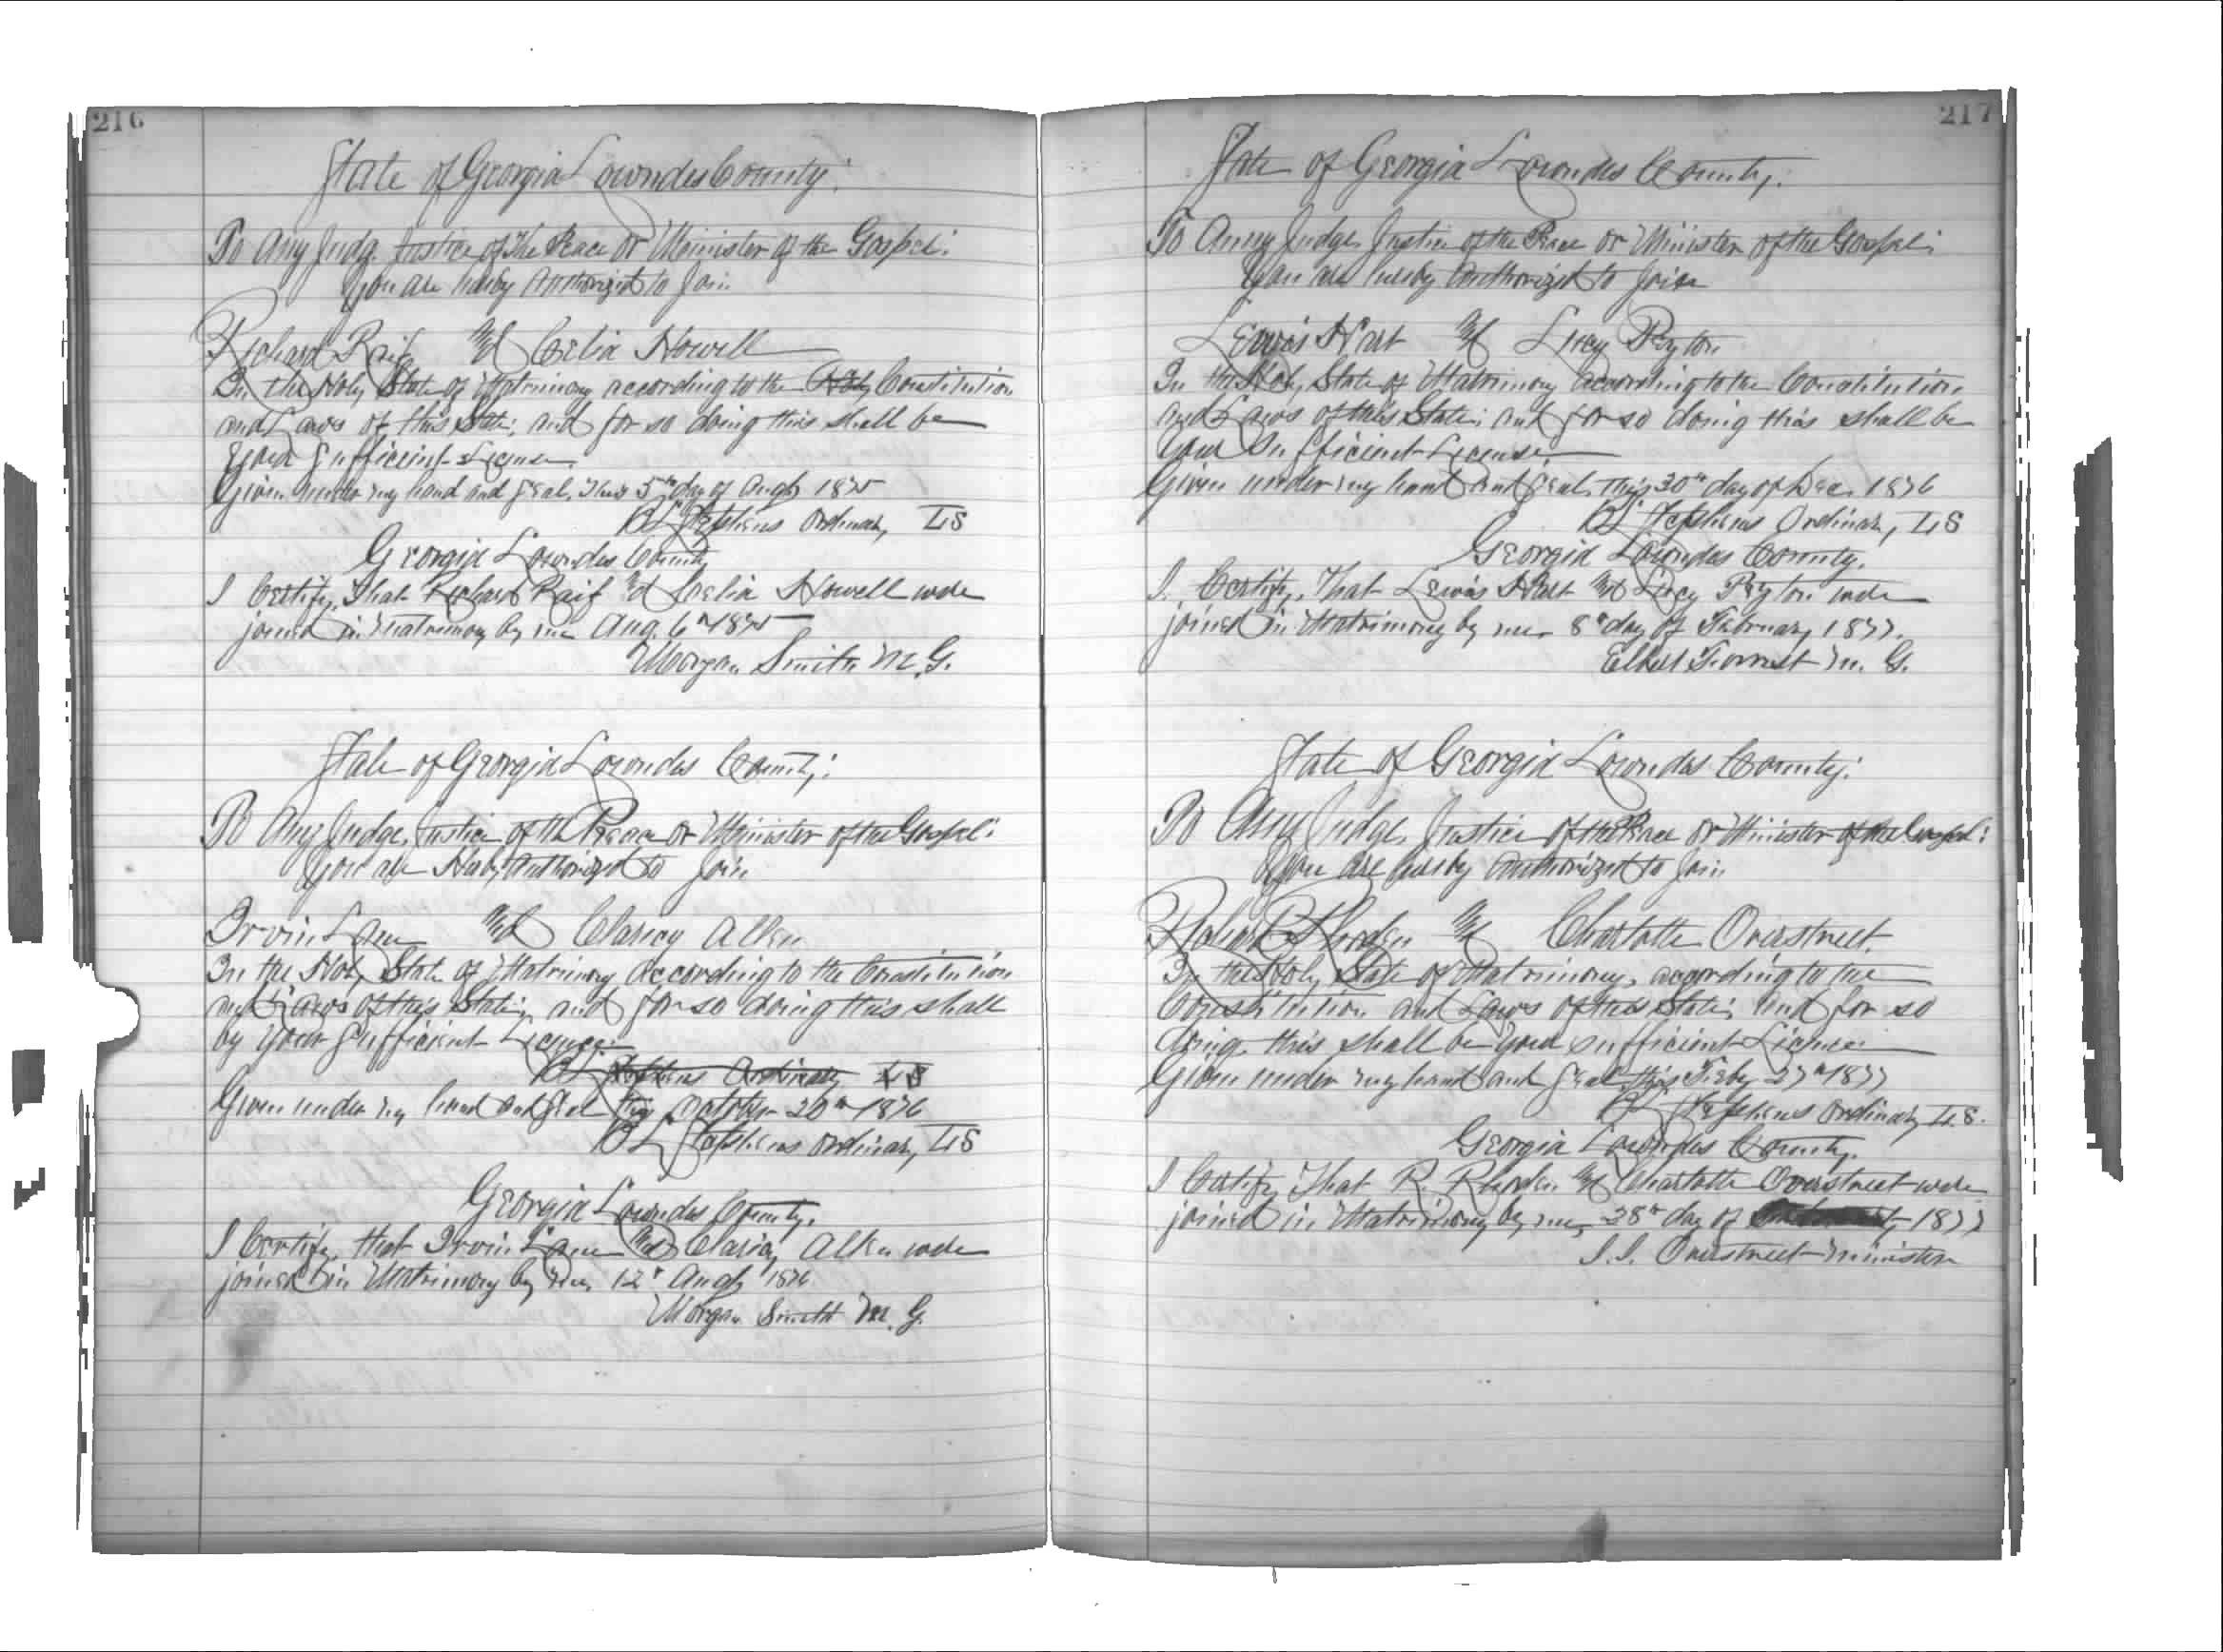 216
State of Georgia Lowndes County:
To Any Judg. Justice of the Peace or Minister of the Gospel:
You are hereby Authorized to Join
Richard Raif & Celia Howell
In the Holy State of Matrimony according to the Constitution
and Laws of this State; and for so doing this shall be
Your Sufficient License.
Given under my hand and Seal, This 5th day of Augt 1875
B L Stephens Ordinary, LS
Georgia Lowndes County
I Certify, That Richard Raif & Celia Howell were
joined in Matrimony by me Aug. 6th 1875
Morgan Smith M.G.
State of Georgia Lowndes County:
To Any Judge, Justice of the Peace or Minister of the Gospel:
You are Hereby Authorized to Join
Irvin & Claricy
In the Holy State of Matrimony according to the Constitution
and Laws of this State; and for so doing this shall
by Your Sufficient License:
B L Stephens Ordinary LS
Given under my hand and Seal this October 20th 1876
B L Stephens Ordinary, LS
Georgia Lowndes County.
I Certify, that Irvin & were
joined in Matrimony by me, 12th Augt 1876
Morgan Smith M.G.
217
State of Georgia Lowndes County.
To Anny Judge, Justice of the Peace or Minister of the Gospel:
You are hereby Authorized to Join
Lewis Hart & Lucy Peyton
In the Holy State of Matrimony according to the Constitution
and Laws of this State; and for so doing this shall be
Your Sufficient License.
Given under my hand and Seal, This 30th day of Dec. 1876
B L Stephens Ordinary, LS
Georgia Lowndes County.
I. Certify, That Lewis Hart & Lucy Peyton were
joined in Matrimony by me 8th day of February 1877.
Elbert Forrest M. G.
State of Georgia Lowndes County:
To Any Judge, Justice of the Peace or Minister of the Gospel:
You are hereby Authorized to Join
Richard Rhoden & Charlotte Overstreet.
In the Holy State of Matrimony, according to the
Constitution and Laws of this State; and for so
doing this shall be Your sufficient License
Given under my hand and Seal this Feby 27th 1877
B L Stephens Ordinary LS.
Georgia Lowndes County.
I Certify That R. Rhoden & Charlotte Overstreet were
joined in Matrimony by me, 28th day of 1877
J.J. Overstreet Minister